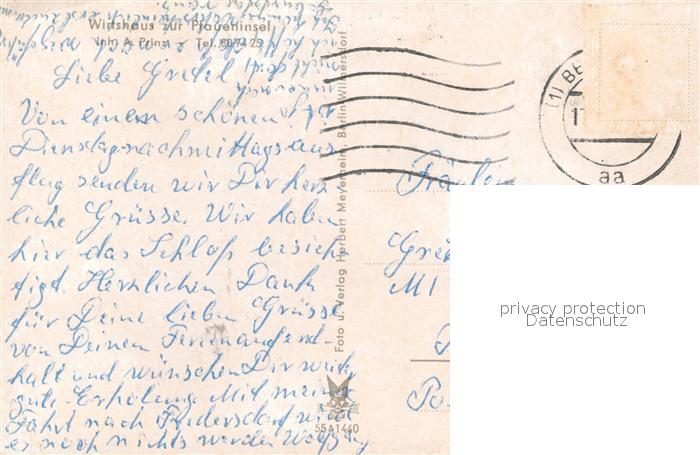 Wirtshaus zur Pfaueninsel
Inh. A. Prinz Tel. 80 74 25
Liebe Gretel!
Von einem schönen
Dienstagnachmittagsaus
flug senden wir Dir herz
liche Grüsse. Wir haben
hier das Schloß besich
tigt. Herzlichen Dank
für Deine lieben Grüsse
von Deinem Ferienaufent-
halt und wünschen Dir weit.
gute Erholung. Mit meiner
Fahrt nach Fredersdorf wird
es noch nichts werden
Foto u. Verlag Herbert Meyerheim, Berlin-Wilmersdorf
55A1440
(1) BE
1
aa
Fräulein
Gre
M1
Po
privacy protection
Datenschutz